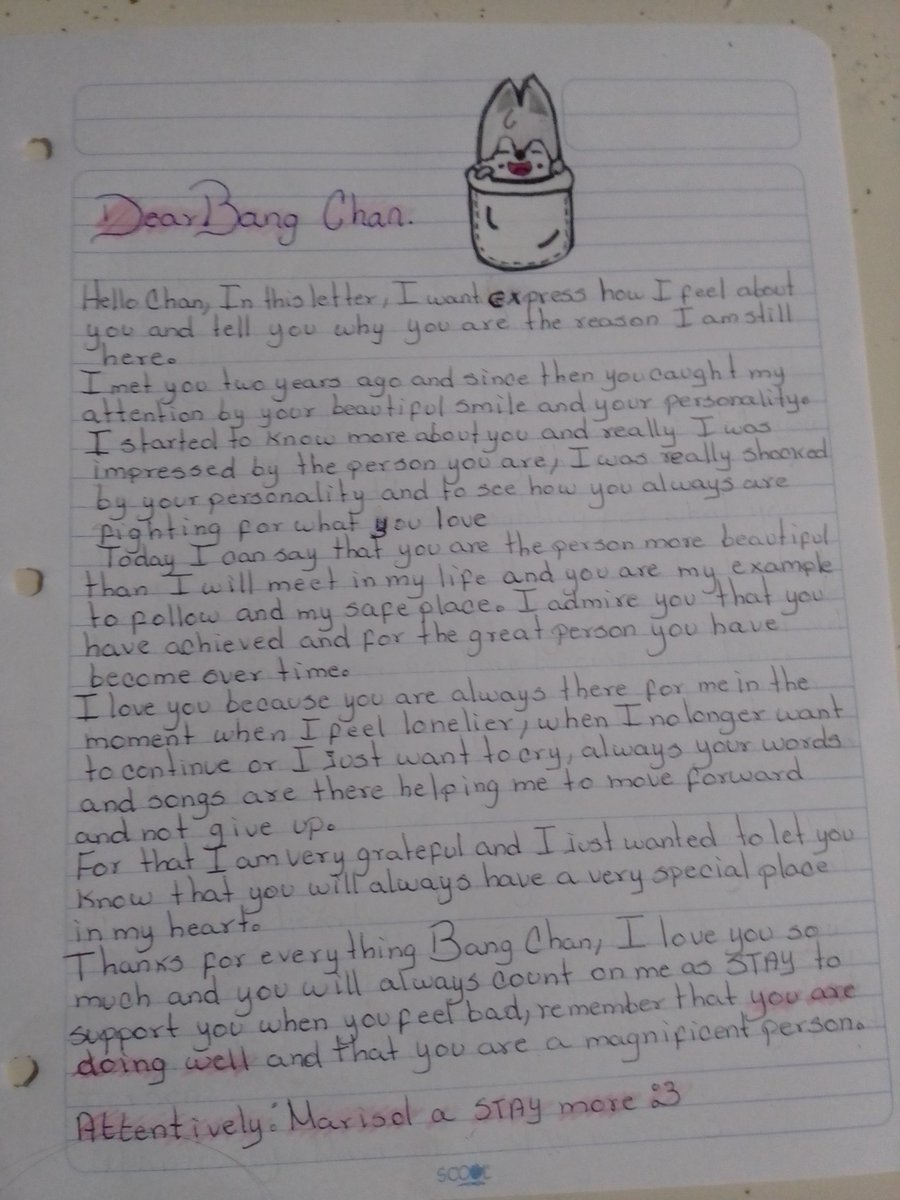 Dear Bang Chan.
Hello Chan, In this letter, I want express how I feel about
you and tell you why you are the reason I am still
here.
I met you two years ago and since then you caught my
attention by your beautiful smile and your personality.
I started to know more about you and really I was
impressed by the person you are, I was really shocked
by your personality and to see how you always are
fighting for what you love
Today I can say that you are the person more beautiful
than I will meet in my life and you are my example
to follow and my safe place. I admire you that you
have achieved and for the great person you have
become over time.
I love you because you are always there for me in the
moment when I feel lonelier, when I no longer want
to continue or I just want to cry, always your words
and songs are there helping me to move forward
and not give up.
For that I am very grateful and I just wanted to let you
know that you will always have a very special place
in my heart.
Thanks for everything Bang Chan, I love you so
much and you will always count on me as STAY to
support you when you feel bad, remember that you are
doing well and that you are a magnificent person.
Attentively: Marisol a STAY more :3
SCOOL